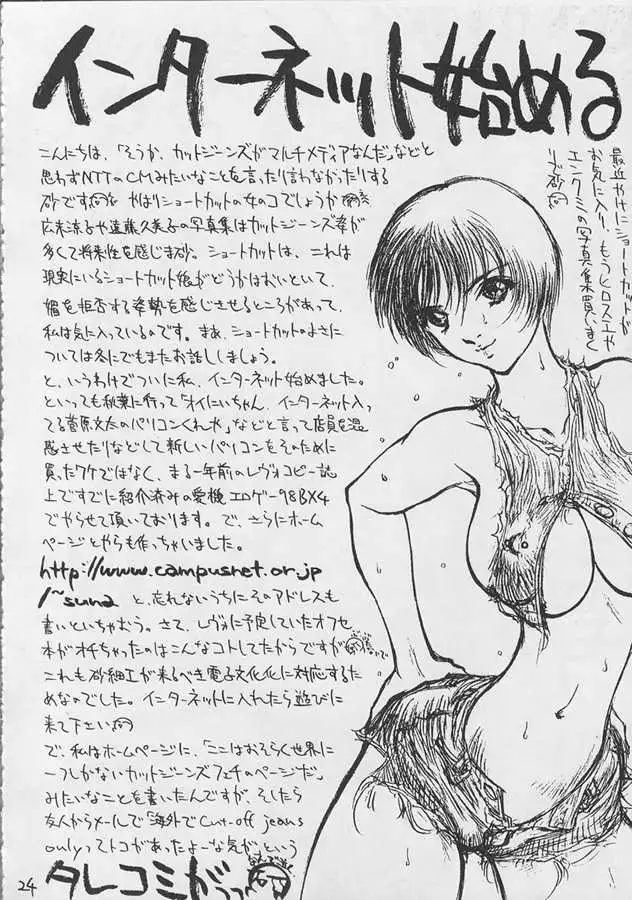 インターネット始める
こんにちは、「そうか、カットジーンズがマルチメディアなんだ」などと
思わずNTTのCMみたいなことを言ったり言わなかったりする
砂です やはりショートカットの女のコでしょうか
広末涼子や遠藤久美子の写真集はカットジーンズ姿が
多くて将来性を感じま砂。ショートカットは、これは
現実にいるショートカット娘がどうかはおいといて、
媚を拒否する姿勢を感じさせるところがあって、
私は気に入っているのです。まあ、ショートカットのよさに
ついては冬にでもまたお話ししましょう。
と、いうわけでついに私、インターネット始めました。
といっても秋葉に行って「オイにいちゃん、インターネット入っ
てる菅原文太のパソコンくれや」などと言って店員を混
惑させたりなどして新しいパソコンをそのために
買ったワケではなく、まる一年前のレヴォコピー誌
上ですでに紹介済みの愛機、エロゲー98BX4
でやらせて頂いております。で、さらにホーム
ページとやらも作っちゃいました。
http://www.campusnet.or.jp
/~suna と、忘れないうちにそのアドレスも
書いといちゃおう。さて、レヴォに予定していたオフセ
本がオチちゃったのはこんなコトしてたからですが
これも砂細工が来るべき電子文化化に対応するた
めなのでした。インターネットに入れたら遊びに
来て下さい
で、私はホームページに、「ここはおそらく世界に
一つしかないカットジーンズフェチのページだ」
みたいなことを書いたんですが、そしたら
友人からメールで「海外でcut-off jeans
onlyってトコがあったよーな気が」という
タレコミがうっ
最近やけにショートカットが
お気に入り、もうヒロスエや
エンクミの写真集買いまく
りで砂
24